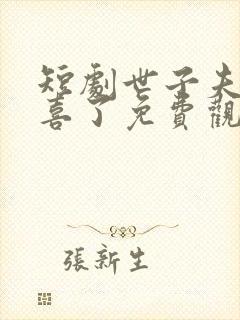 短劇世子夫
喜了免費觀
張新生